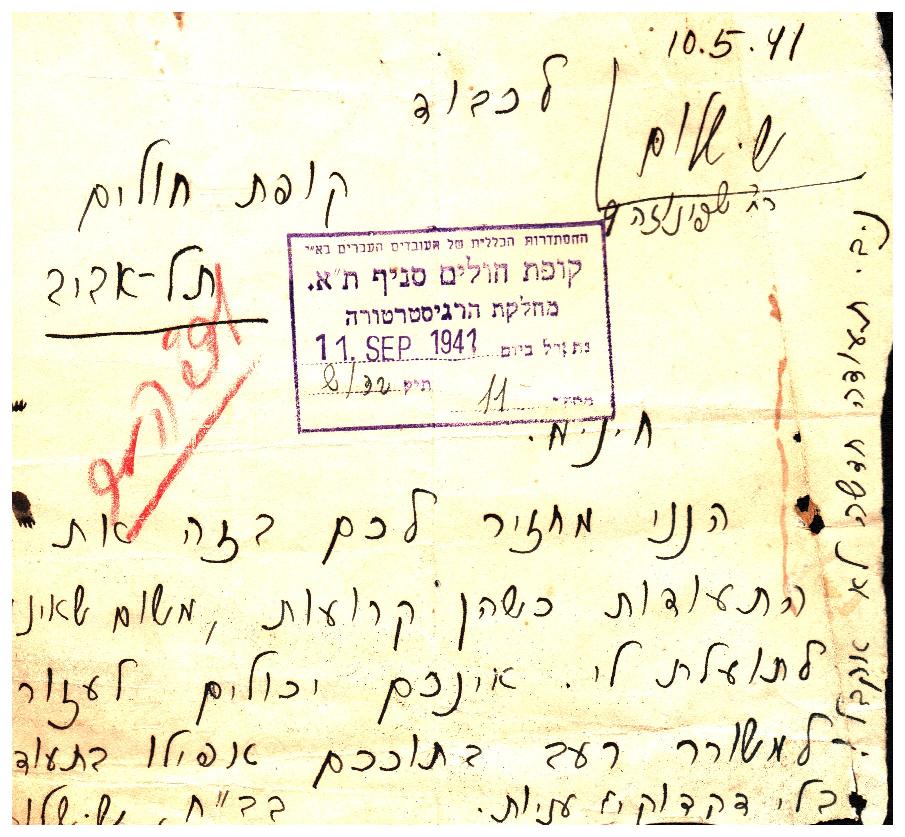 10.5.41
ש. שלום
רח' שפינוזה 9
לכבוד
קופת חולים
תל-אביב
ההסתדרות הכללית של העובדים העברים בא"י
קופת חולים סניף ת"א.
מחלקת הרגיסטרטורה
נתקבל ביום 11. SEP. 1941
תיק
11
הנני מחזיר לכם בזה את
התעודות כשהן קרועות, משום שאינ
לתועלת לי. אינכם יכולים לעזור
למשורר רעב בתוככם אפילו בתעוד
בלי דקדוקי עניות.
בב"ח, ש. שלו
נ.ב. תעודה חדשה לא אקבל.